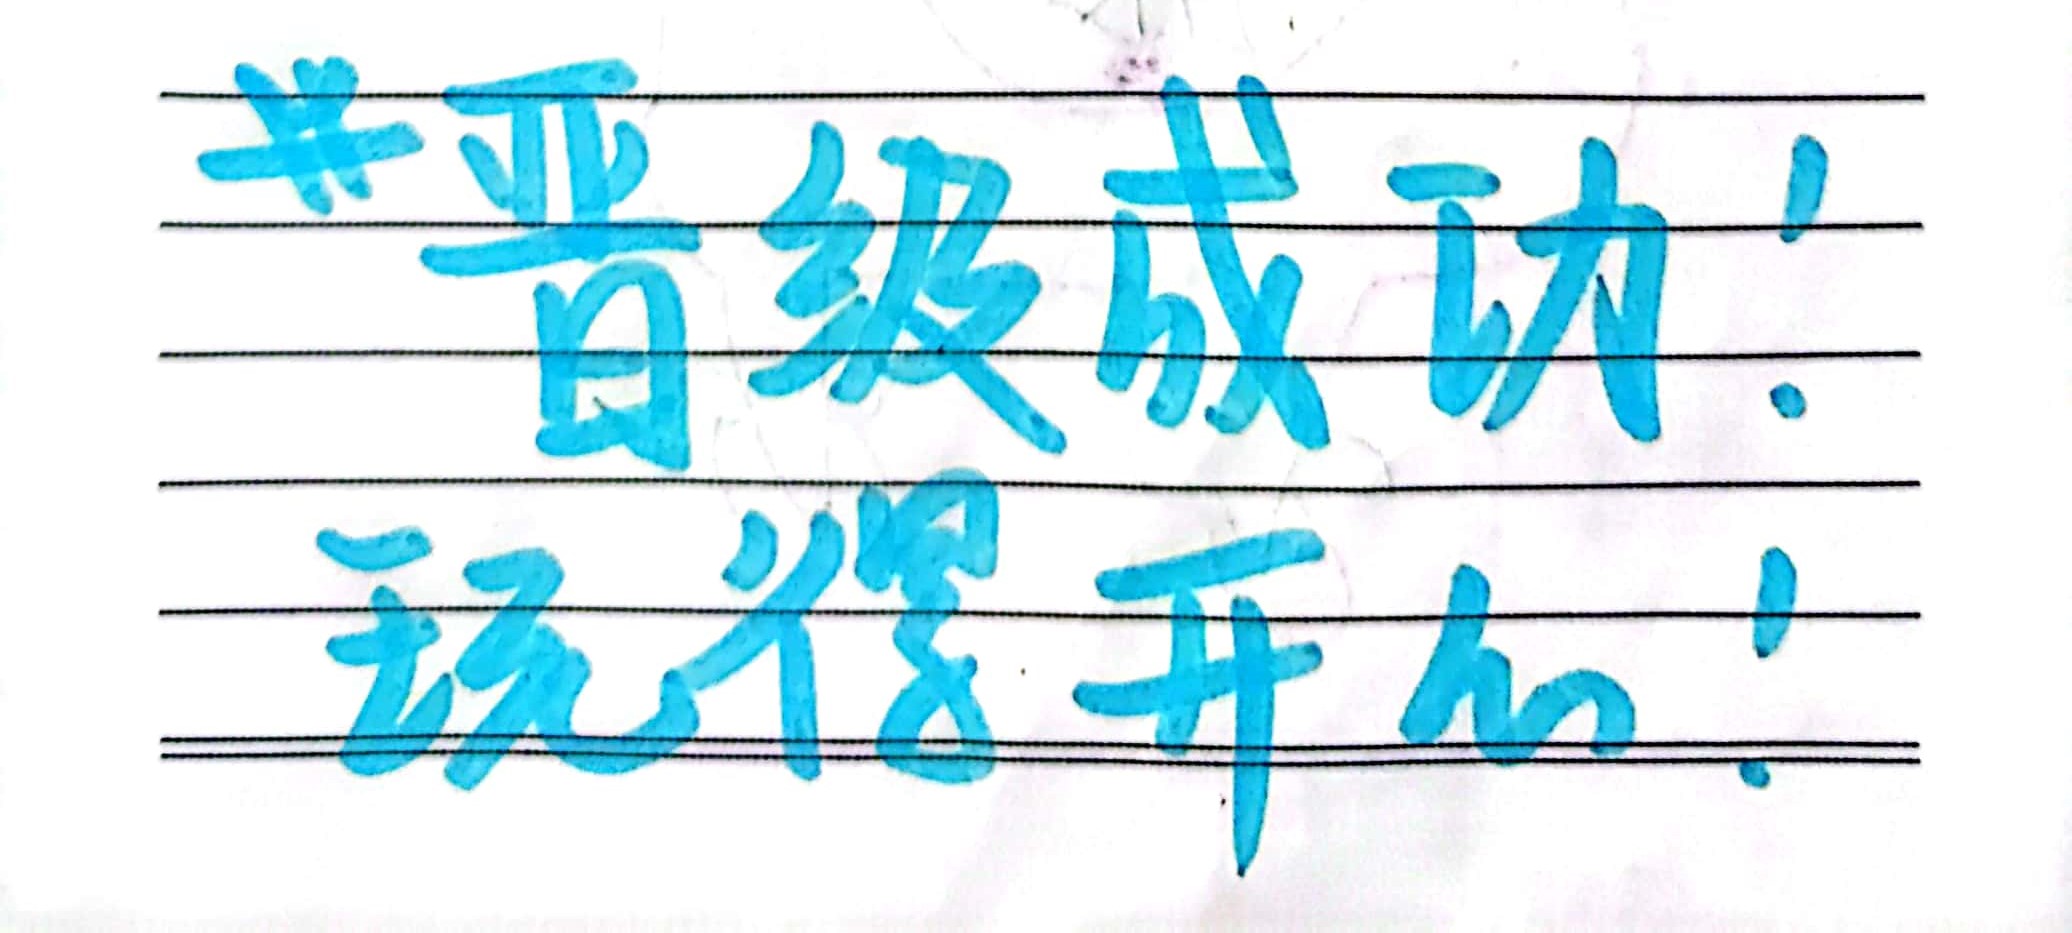 *晋级成功!
玩得开心!